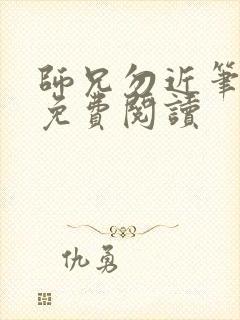 師兄勿近筆
免費閱讀
仇勇